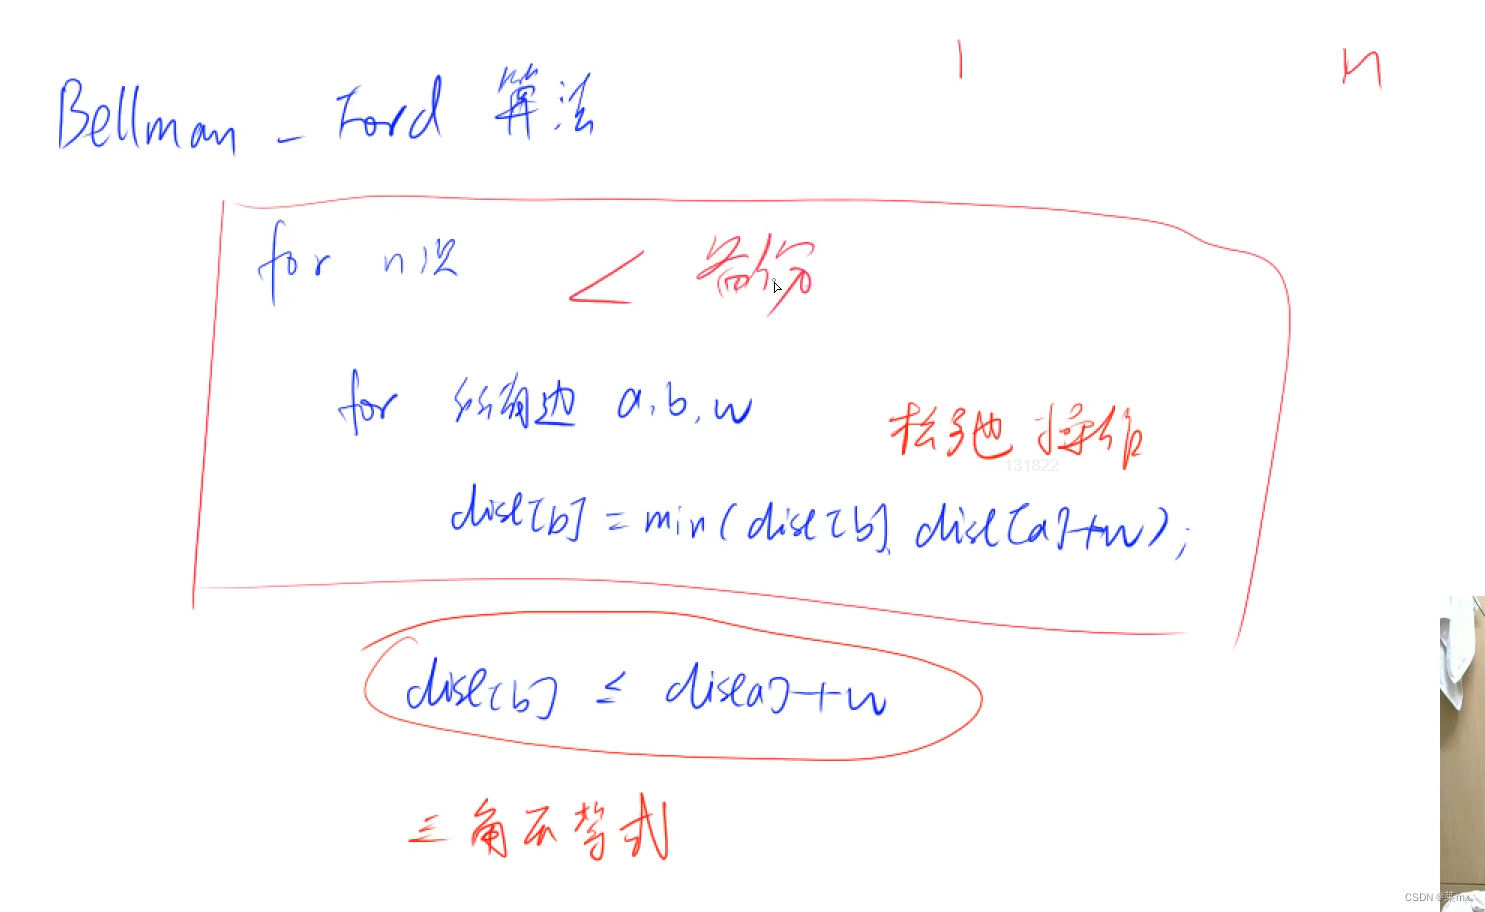 1 n
Bellman - Ford 算法
for n次 < 备份
for 所有边 a,b,w
松弛操作
131822
dist[b] = min(dist[b], dist[a]+w);
dist[b] ≤ dist[a]+w
三角不等式